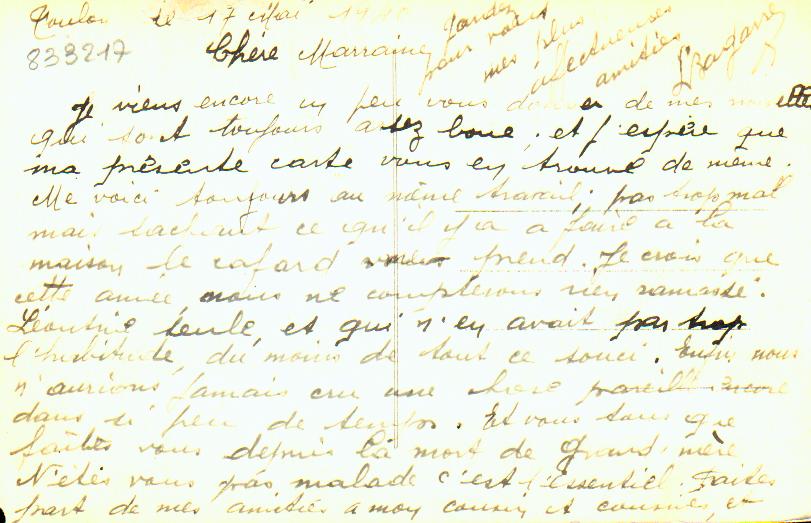 Toulon le 17 Mai 19
833217
Chère Marraine
gardez
pour vous
mes plus
affectueuses
amitiés
LBagarre
Je viens encore un peu vous donner de mes nouvelles
qui sont toujours assez bone. et j'espère que
ma présente carte vous en trouve de même.
Me voici toujours au même travail, pas trop mal
mais sachant ce qu'il y a a faire a la
maison le cafard vous prend. Je crois que
cette année nous ne compterons rien ramasse.
Léontine seule et qui n'en avait pas trop
l'habitude, du moins de tout ce souci. Enfin nous
n'aurions jamais cru une chose pareille encore
dans si peu de temps. Et vous tous que
faites vous depuis la mort de Grand-mère
N'êtes vous pas malade c'est l'essentiel. Faites
part de mes amitiés a mon cousin et cousine, et